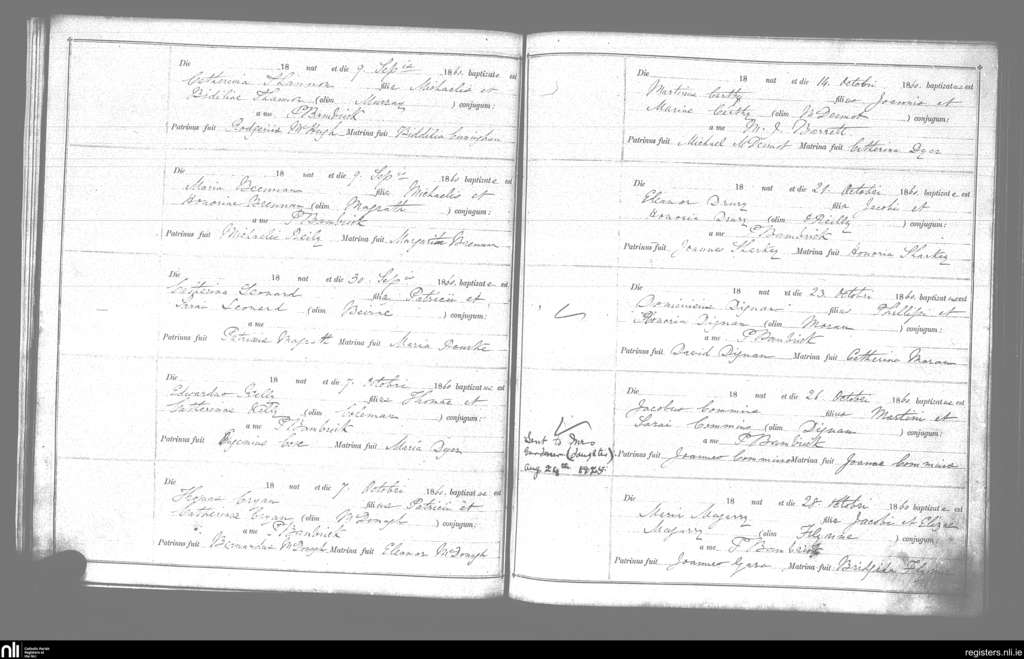 Die 18 nat et die 9. Sepis 1860. baptizata est
Catherina Shannon filia Michaelis et
Bidiliae Shannon (olim Murray ) conjugum:
a me P Bambrick
Patrinus fuit Rodgerius McHugh Matrina fuit Biddilia
Die 18 nat et die 9. Sepis 1860 baptizata est
Maria Brennan filia Michaelis et
Honoriae Brennan (olim Magrath ) conjugum:
a me P Bambrick
Patrinus fuit Michaelis Reilly Matrina fuit Margarita Brennan
Die 18 nat et die 30. Sepis 1860. baptizata est
Catherina Leonard filia Patricii et
Leonard (olim Beirne ) conjugum:
a me
Patrinus fuit Patricius Magrath Matrina fuit Maria Rourke
Die 18 nat et die 7. Octobri 1860 baptizatus est
Edwardus Kelly filius Thomae et
Catherinae Kelly (olim Coleman ) conjugum:
a me P Bambrick
Patrinus fuit Eugenius Coxe Matrina fuit Maria Dyer
Die 18 nat et die 7. Octobri 1860. baptizatus est
Thomas Cryan filius Patricii et
Catherinae Cryan (olim McDonagh ) conjugum:
a me P Bambrick
Patrinus fuit Bernardus McDonagh Matrina fuit Eleanor McDonagh
Die 18 nat et die 14. Octobri 1860. baptizatus est
Martinus filius Joannis et
Mariae (olim McDermot ) conjugum:
a me M. J. Barrett
Patrinus fuit Michael McDermot Matrina fuit Catherina Dyer
Die 18 nat et die 21. Octobri 1860. baptizata est
Eleanor Drury filia Jacobi et
Honoria Drury (olim OReilly ) conjugum:
a me P Bambrick
Patrinus fuit Joannes Sharkey Matrina fuit Honoria Sharkey
Die 18 nat et die 23. Octobri 1860. baptizatus est
Dominicus Dignan filius Phillipi et
Honoria Dignan (olim Moran ) conjugum:
a me P Bambrick
Patrinus fuit David Dignan Matrina fuit Catherina Moran
Die 18 nat et die 26. Octobri 1860 baptizatus est
Jacobus Commins filius Martini et
Sarai Commins (olim Dignan ) conjugum:
a me P Bambrick
Patrinus fuit Joannes Commins Matrina fuit Joanna Commins
Sent to Mrs
Gardner (daughter)
Aug 24th
Die 18 nat et die 28. Octobri 1860 baptizata est
Maria Magurry filia Jacobi et Elizae
Magurry (olim ) conjugum:
a me P Bambrick
Patrinus fuit Joannes Gara Matrina fuit Bridgida
nli Catholic Parish
Registers at
the NLI
registers.nli.ie